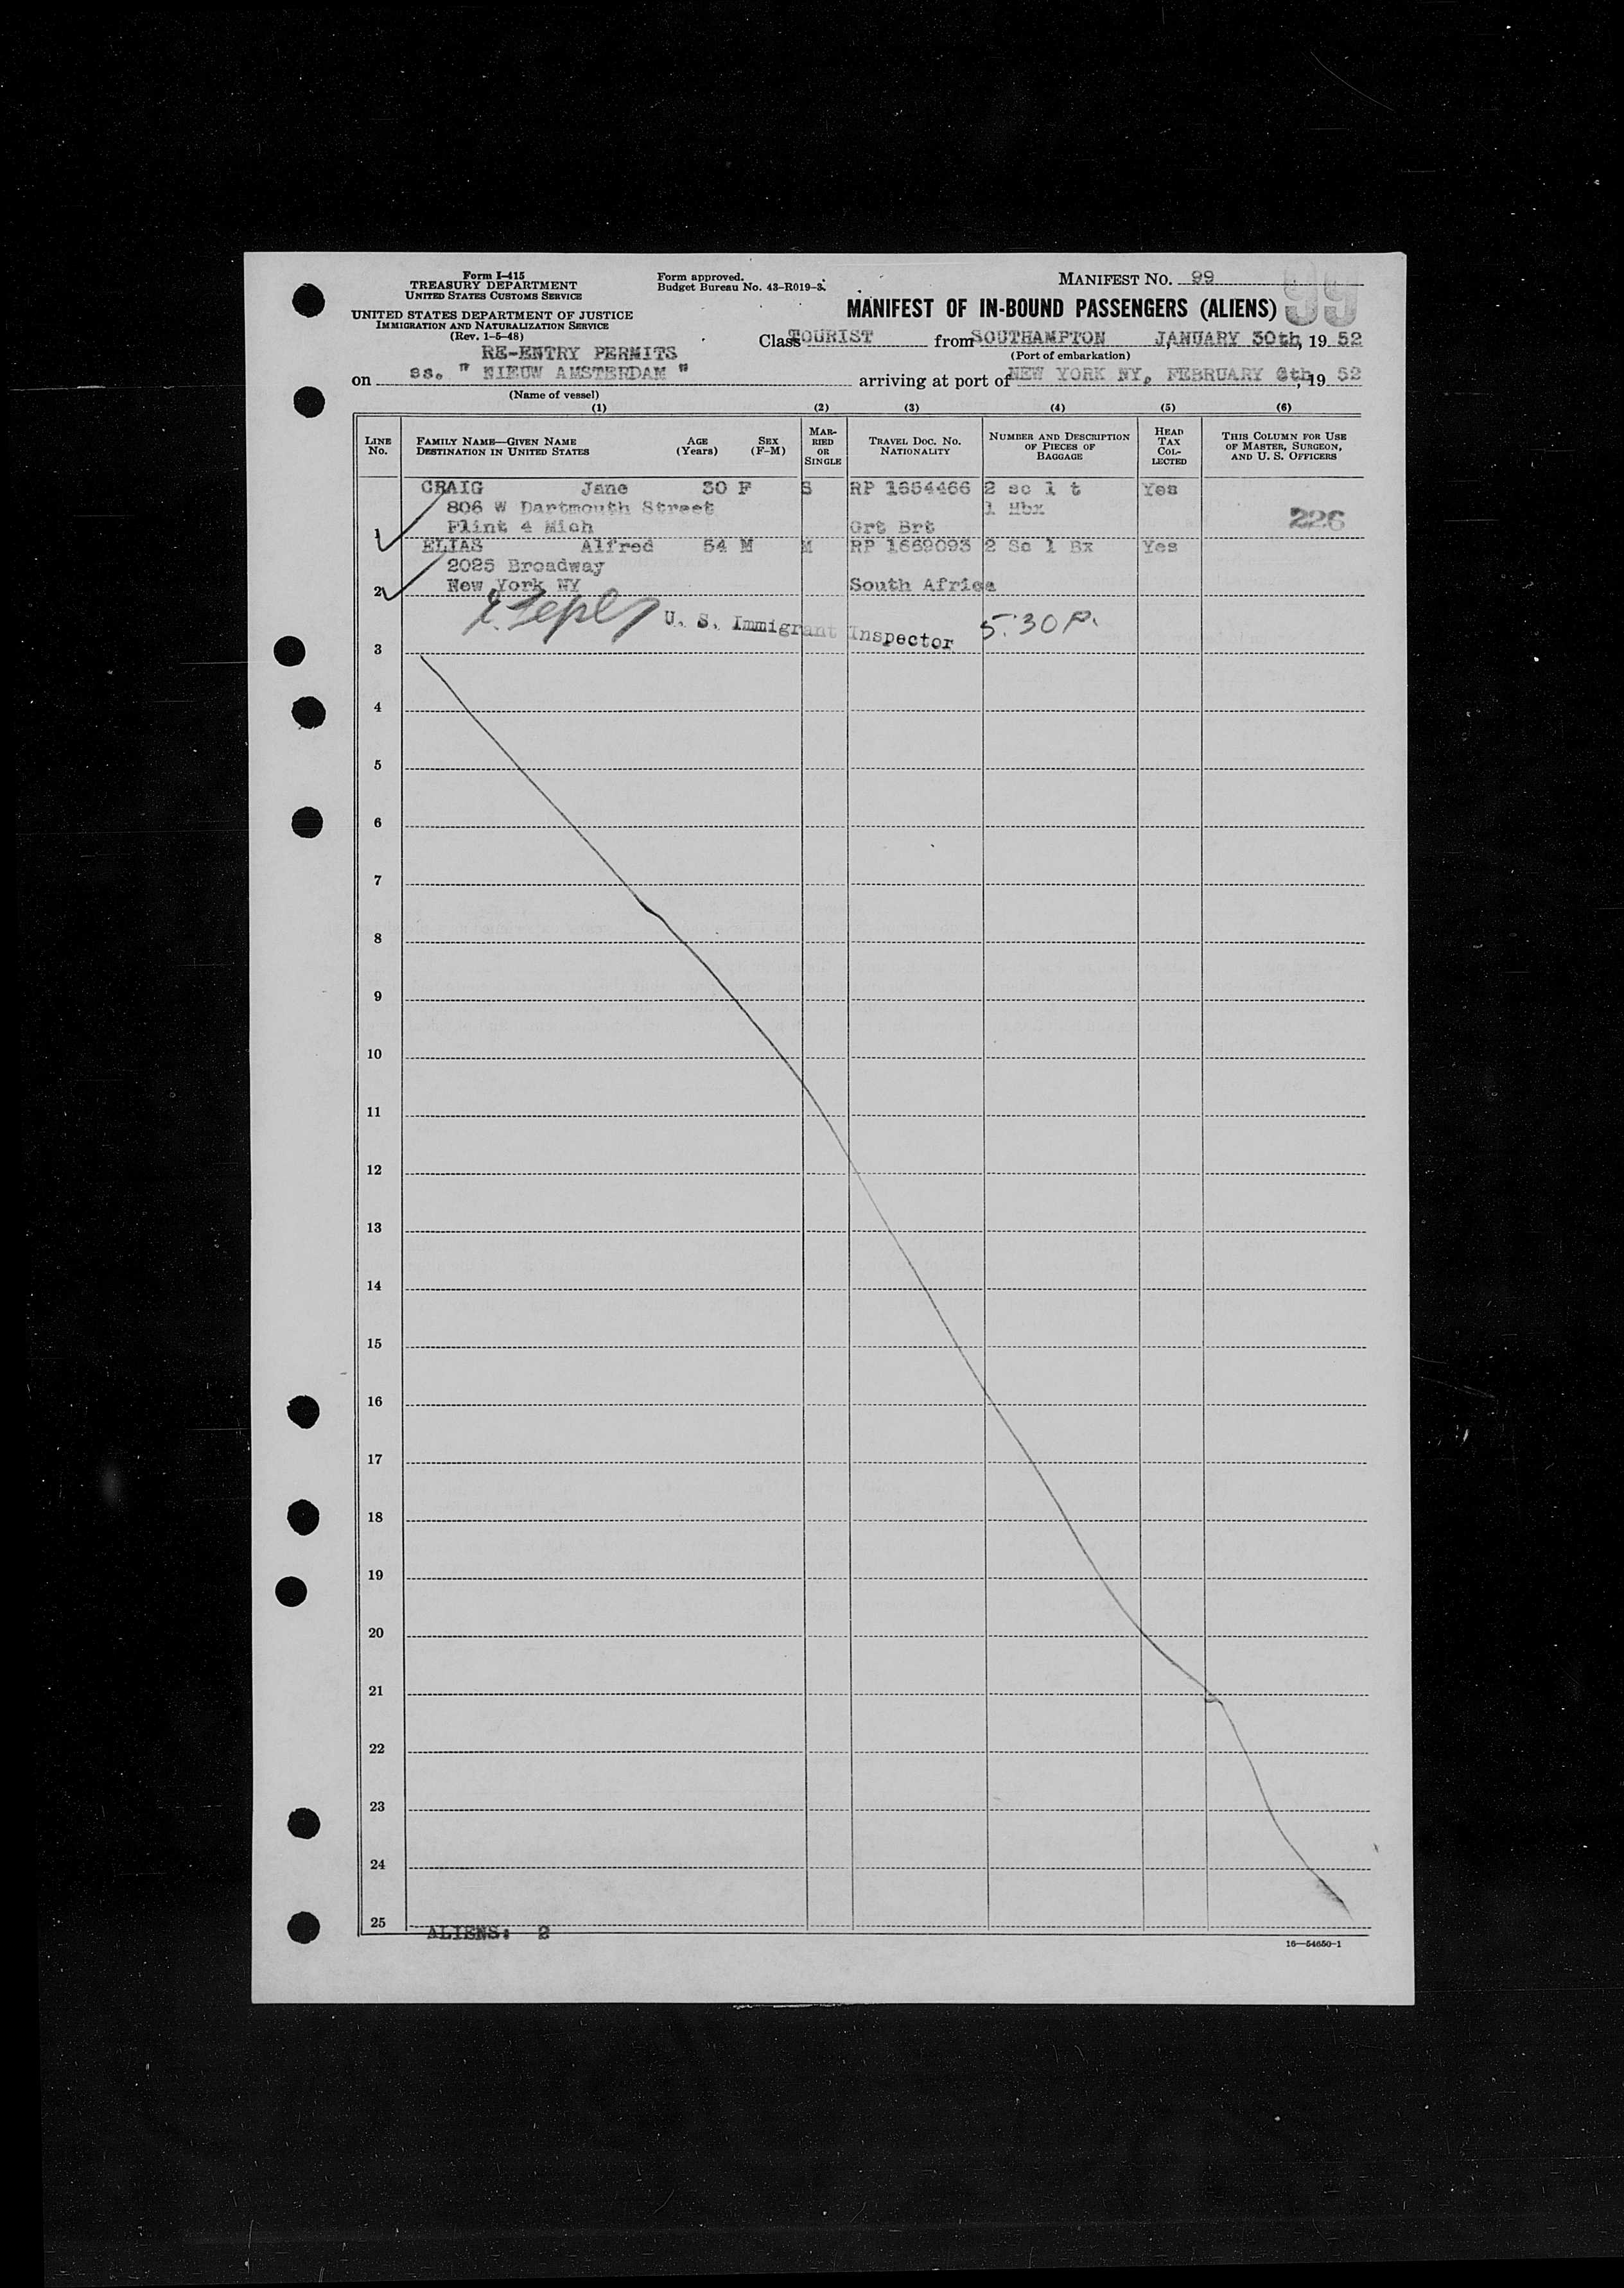 Form I-415
TREASURY DEPARTMENT
UNITED STATES CUSTOMS SERVICE
UNITED STATES DEPARTMENT OF JUSTICE
IMMIGRATION AND NATURALIZATION SERVICE
(Rev. 1-5-48)
Form approved.
Budget Bureau No. 43-R019-3.
MANIFEST NO. 99
99
MANIFEST OF IN-BOUND PASSENGERS (ALIENS)
Class TOURIST from SOUTHAMPTON JANUARY 30th, 19 52
(Port of embarkation)
RE-ENTRY PERMITS
on ss. " NIEUW AMSTERDAM " arriving at port of NEW YORK NY, FEBRUARY th, 19 52
(Name of vessel)
(1) (2) (3) (4) (5) (6)
LINE NO. FAMILY NAME—GIVEN NAME DESTINATION IN UNITED STATES AGE (Years) SEX (F-M) MARRIED OR SINGLE TRAVEL DOC. NO. NATIONALITY NUMBER AND DESCRIPTION OF PIECES OF BAGGAGE HEAD TAX COLLECTED THIS COLUMN FOR USE OF MASTER, SURGEON, AND U. S. OFFICERS
CRAIG Jane 30 F S RP 1654466 2 sc 1 t Yes
806 W Dartmouth Street 1 Hbx
1 Flint 4 Mich Grt Brt 226
ELIAS Alfred 54 M M RP 1669093 2 Sc 1 Bx Yes
2025 Broadway
2 New York NY South Africa
U. S. Immigrant Inspector 5:30 P.
3
4
5
6
7
8
9
10
11
12
13
14
15
16
17
18
19
20
21
22
23
24
25
ALIENS: 2
16—54650-1